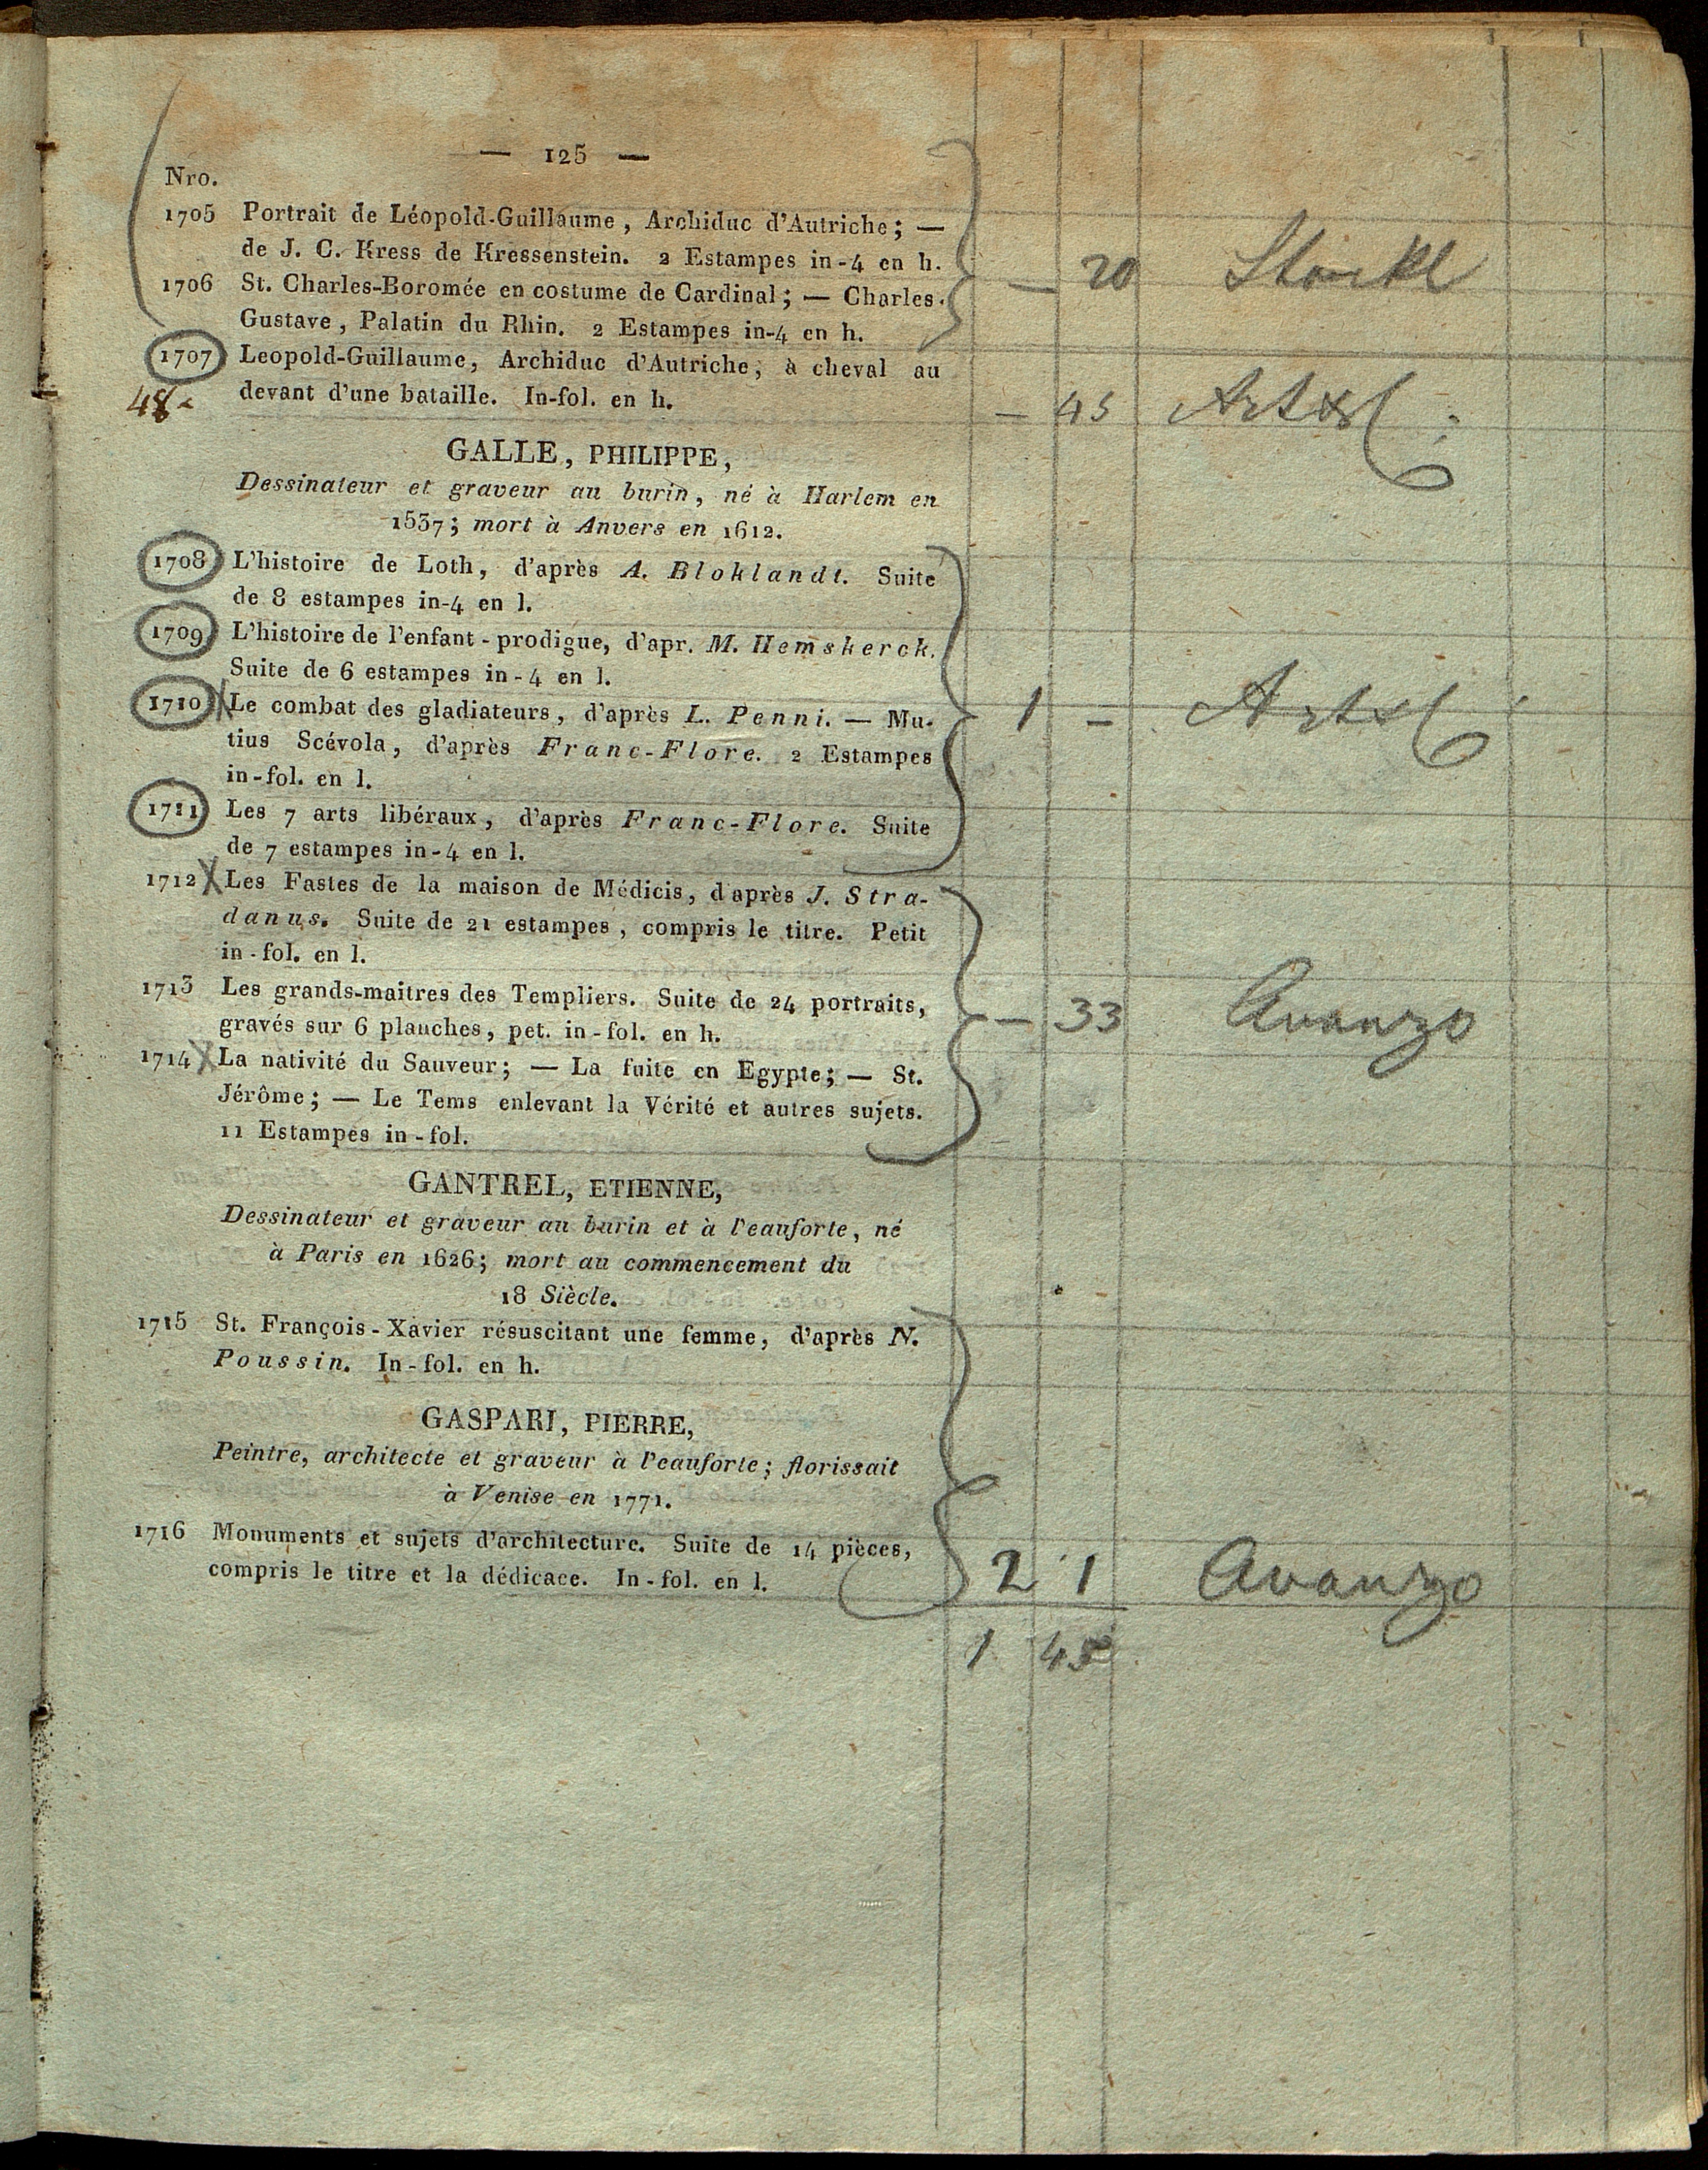 — 125 —
Nro.
1705 Portrait de Léopold-Guillaume, Archiduc d'Autriche; —
de J. C. Kress de Kressenstein. 2 Estampes in-4 en h.
1706 St. Charles-Boromée en costume de Cardinal; — Charles-
— 20 Stöckl
Gustave, Palatin du Rhin. 2 Estampes in-4 en h.
1707 Leopold-Guillaume, Archiduc d'Autriche, à cheval au
48 devant d'une bataille. In-fol. en h.
— 45
GALLE, PHILIPPE,
Dessinateur et graveur au burin, né à Harlem en
1537; mort à Anvers en 1612.
1708 L'histoire de Loth, d'après A. Bloklandt. Suite
de 8 estampes in-4 en l.
1709 L'histoire de l'enfant-prodigue, d'apr. M. Hemskerck.
Suite de 6 estampes in-4 en l.
1710 Le combat des gladiateurs, d'après L. Penni. — Mu-
1 —
tius Scévola, d'après Franc-Flore. 2 Estampes
in-fol. en l.
1711 Les 7 arts libéraux, d'après Franc-Flore. Suite
de 7 estampes in-4 en l.
1712 X Les Fastes de la maison de Médicis, d'après J. Stra-
danus. Suite de 21 estampes, compris le titre. Petit
in-fol. en l.
1713 Les grands-maitres des Templiers. Suite de 24 portraits,
gravés sur 6 planches, pet. in-fol. en h.
— 33 Avanzo
1714 X La nativité du Sauveur; — La fuite en Egypte; — St.
Jérôme; — Le Tems enlevant la Vérité et autres sujets.
11 Estampes in-fol.
GANTREL, ETIENNE,
Dessinateur et graveur au burin et à l'eauforte, né
à Paris en 1626; mort au commencement du
18 Siècle.
1715 St. François-Xavier résuscitant une femme, d'après N.
Poussin. In-fol. en h.
GASPARI, PIERRE,
Peintre, architecte et graveur à l'eauforte; florissait
à Venise en 1771.
1716 Monuments et sujets d'architecture. Suite de 14 pièces,
compris le titre et la dédicace. In-fol. en l.
2 1 Avanzo
1 45